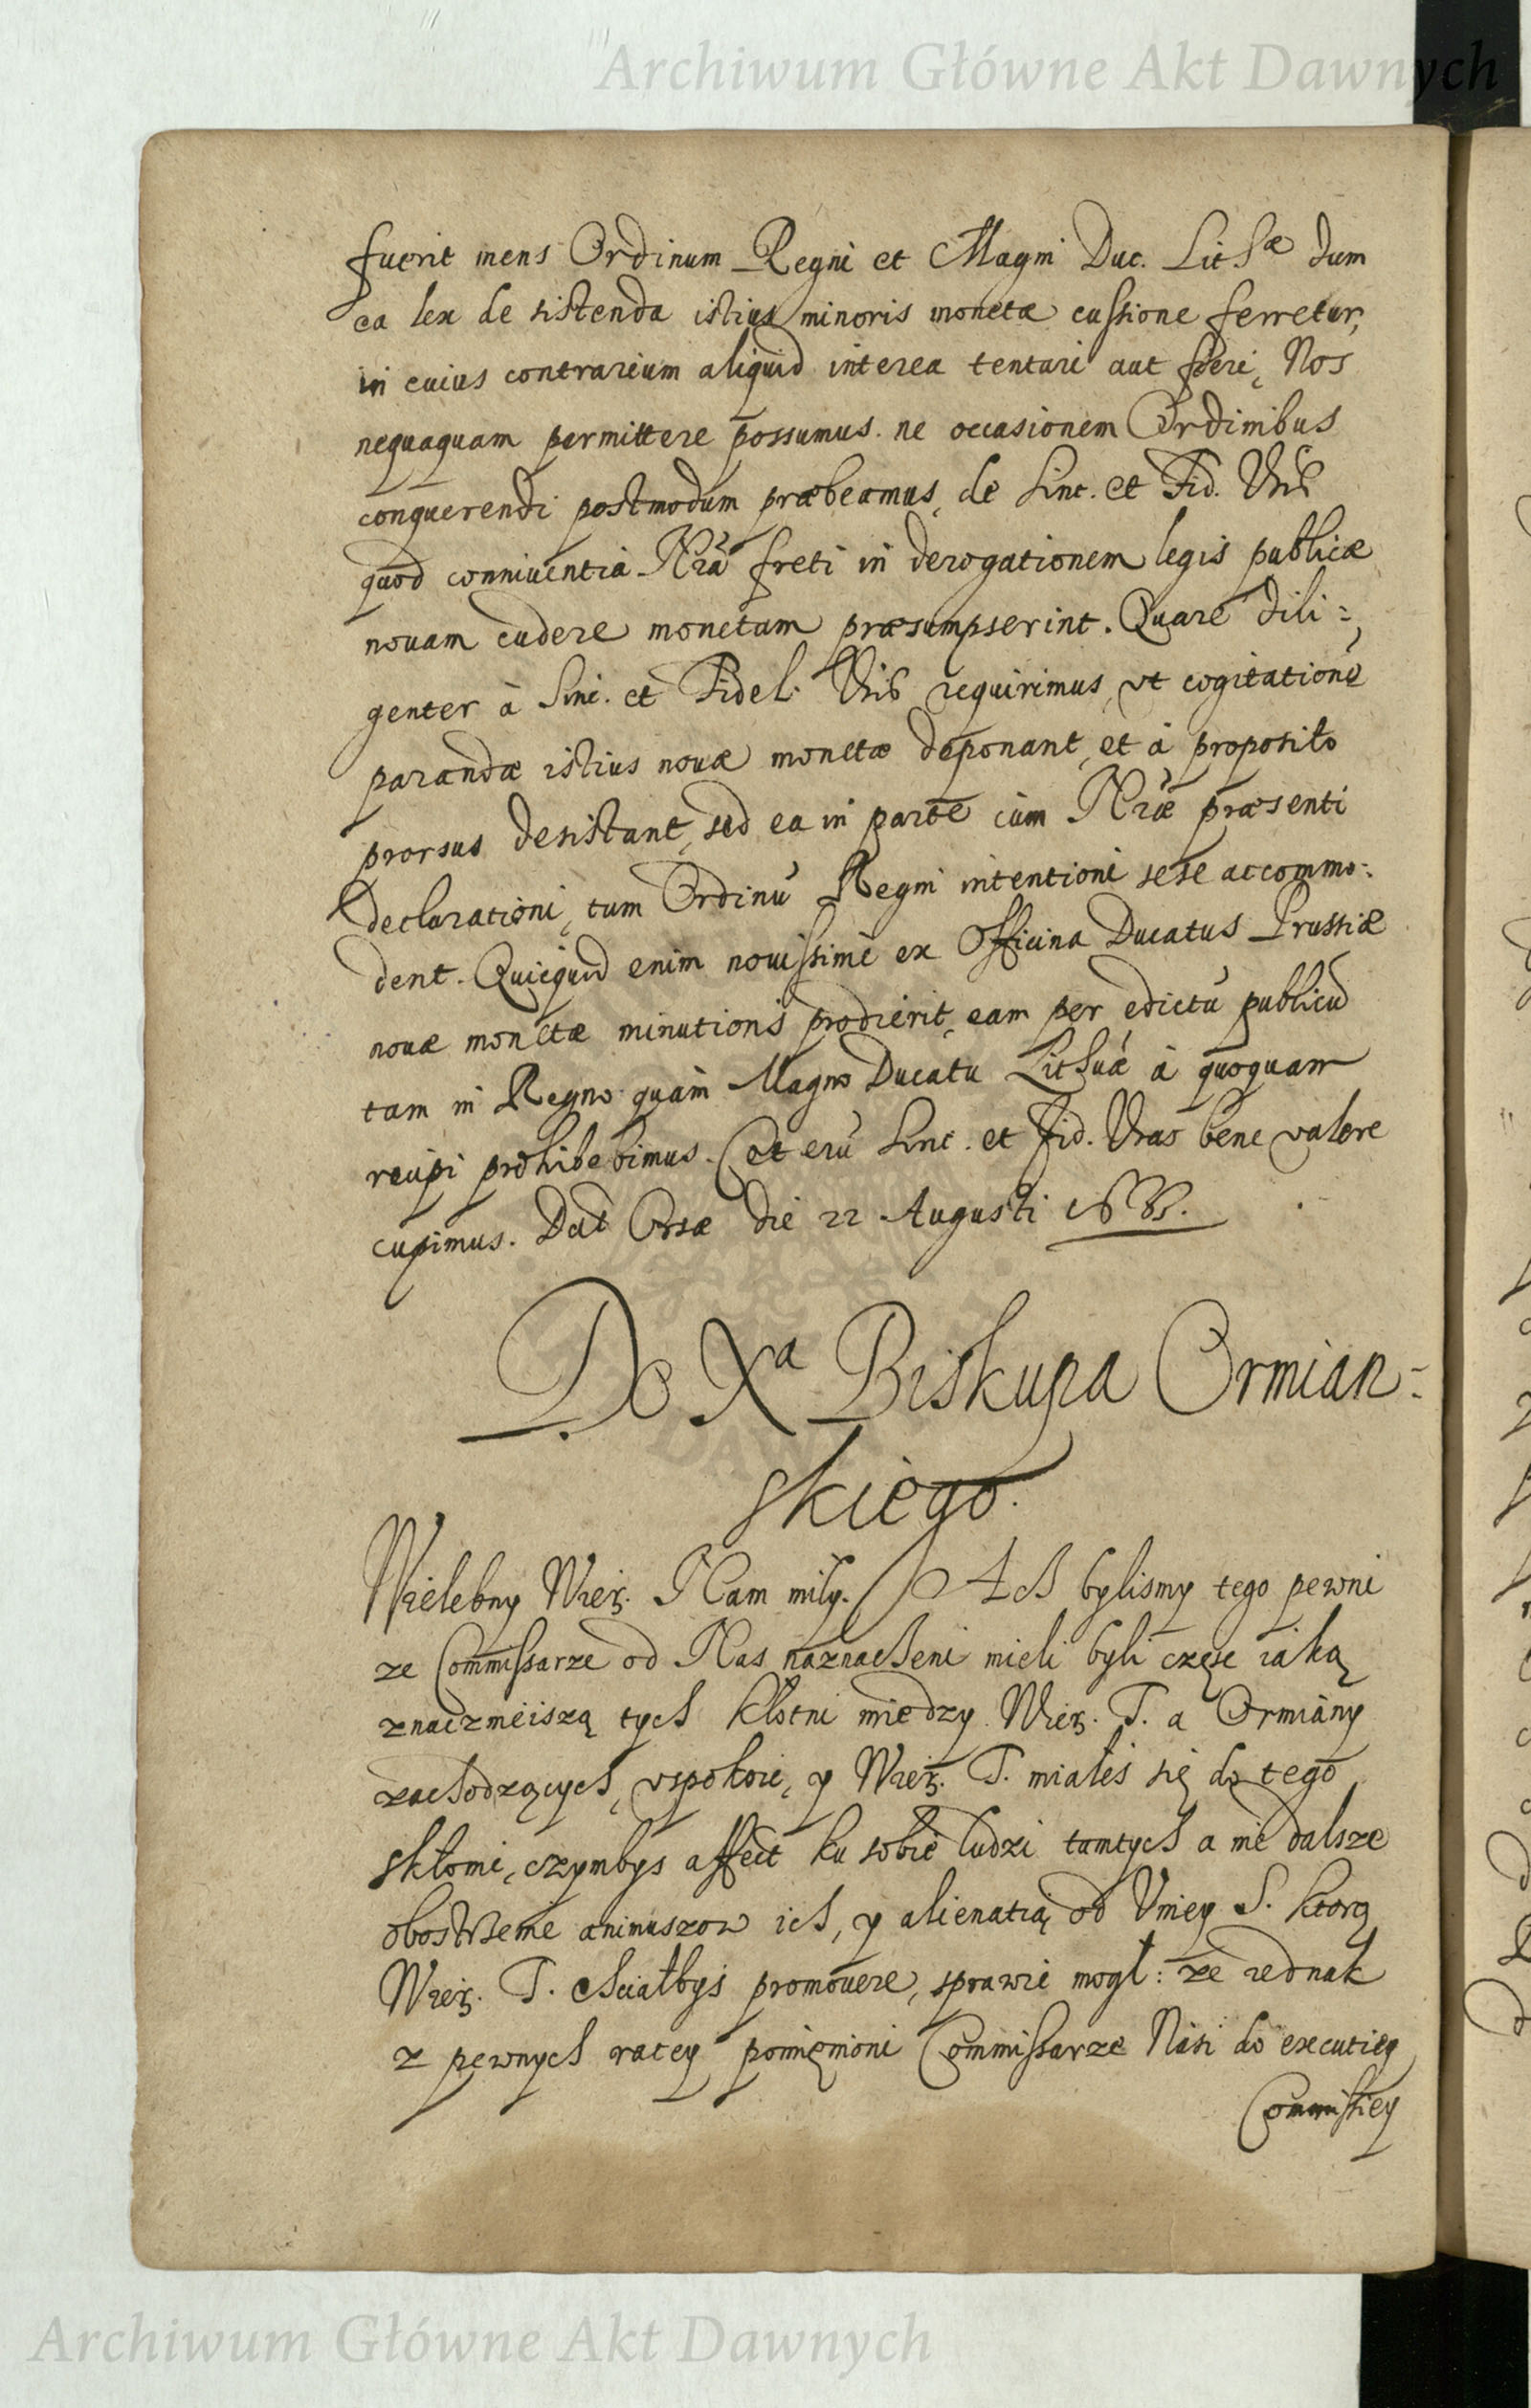 Archiwum Główne Akt Dawnych
fuerit mens Ordinum Regni et Magni Duc. Lithæ dum
ea lex de sistenda istius minoris monetæ cussione ferretur,
in cuius contrarium aliquid interea tentari aut fieri, Nos
nequaquam permittere possumus. ne occasionem Ordinibus
conquerendi postmodum præbeamus, de Sinc. et Fid. Vris
quod conniuentia Nrã freti in derogationem legis publicæ
nouam cudere monetam præsumpserint. Quare dili=
genter à Sinc. et Fidel. Vris requirimus, vt cogitationẽ
parandæ istius nouæ monetæ deponant, et à proposito
prorsus desistant, sed ea in parte cùm Nræ præsenti
declarationi, tum Ordinũ Regni intentioni sese accommo=
dent. Quicquid enim nouissimè ex Officina Ducatus Prussiæ
nouæ monetæ minutioris prodierit, eam per edictũ publicũ
tam in Regno quàm Magno Ducatu Lithuæ à quoquam
recipi prohibebimus. Ceterũ Sinc. et Fid. Vras bene valere
cupimus. Dat Orsæ die 22 Augusti
Do Xa Biskupa Ormian=
skiego.
Wielebny Wierz. Nam miły. Ach bylismy tego pewni
ze Commissarze od Nas naznacheni mieli byli częsc iaką
znacznieiszą tych kłotni między Wierz. T. a Ormiany
zachodzących, vspokoic, y Wierz. T. miałes się do tego
skłonic, czymbys affect ku sobie ludzi tamtych a nie dalsze
obostrzenie animuszow ich, y alienatią od Vniey S. ktorą
Wierz. T. chciałbys promouere, sprawic mogł: ze iednak
z pewnych racey pomięnioni Commissarze Nasi do executiey
Commissiey
Archiwum Główne Akt Dawnych